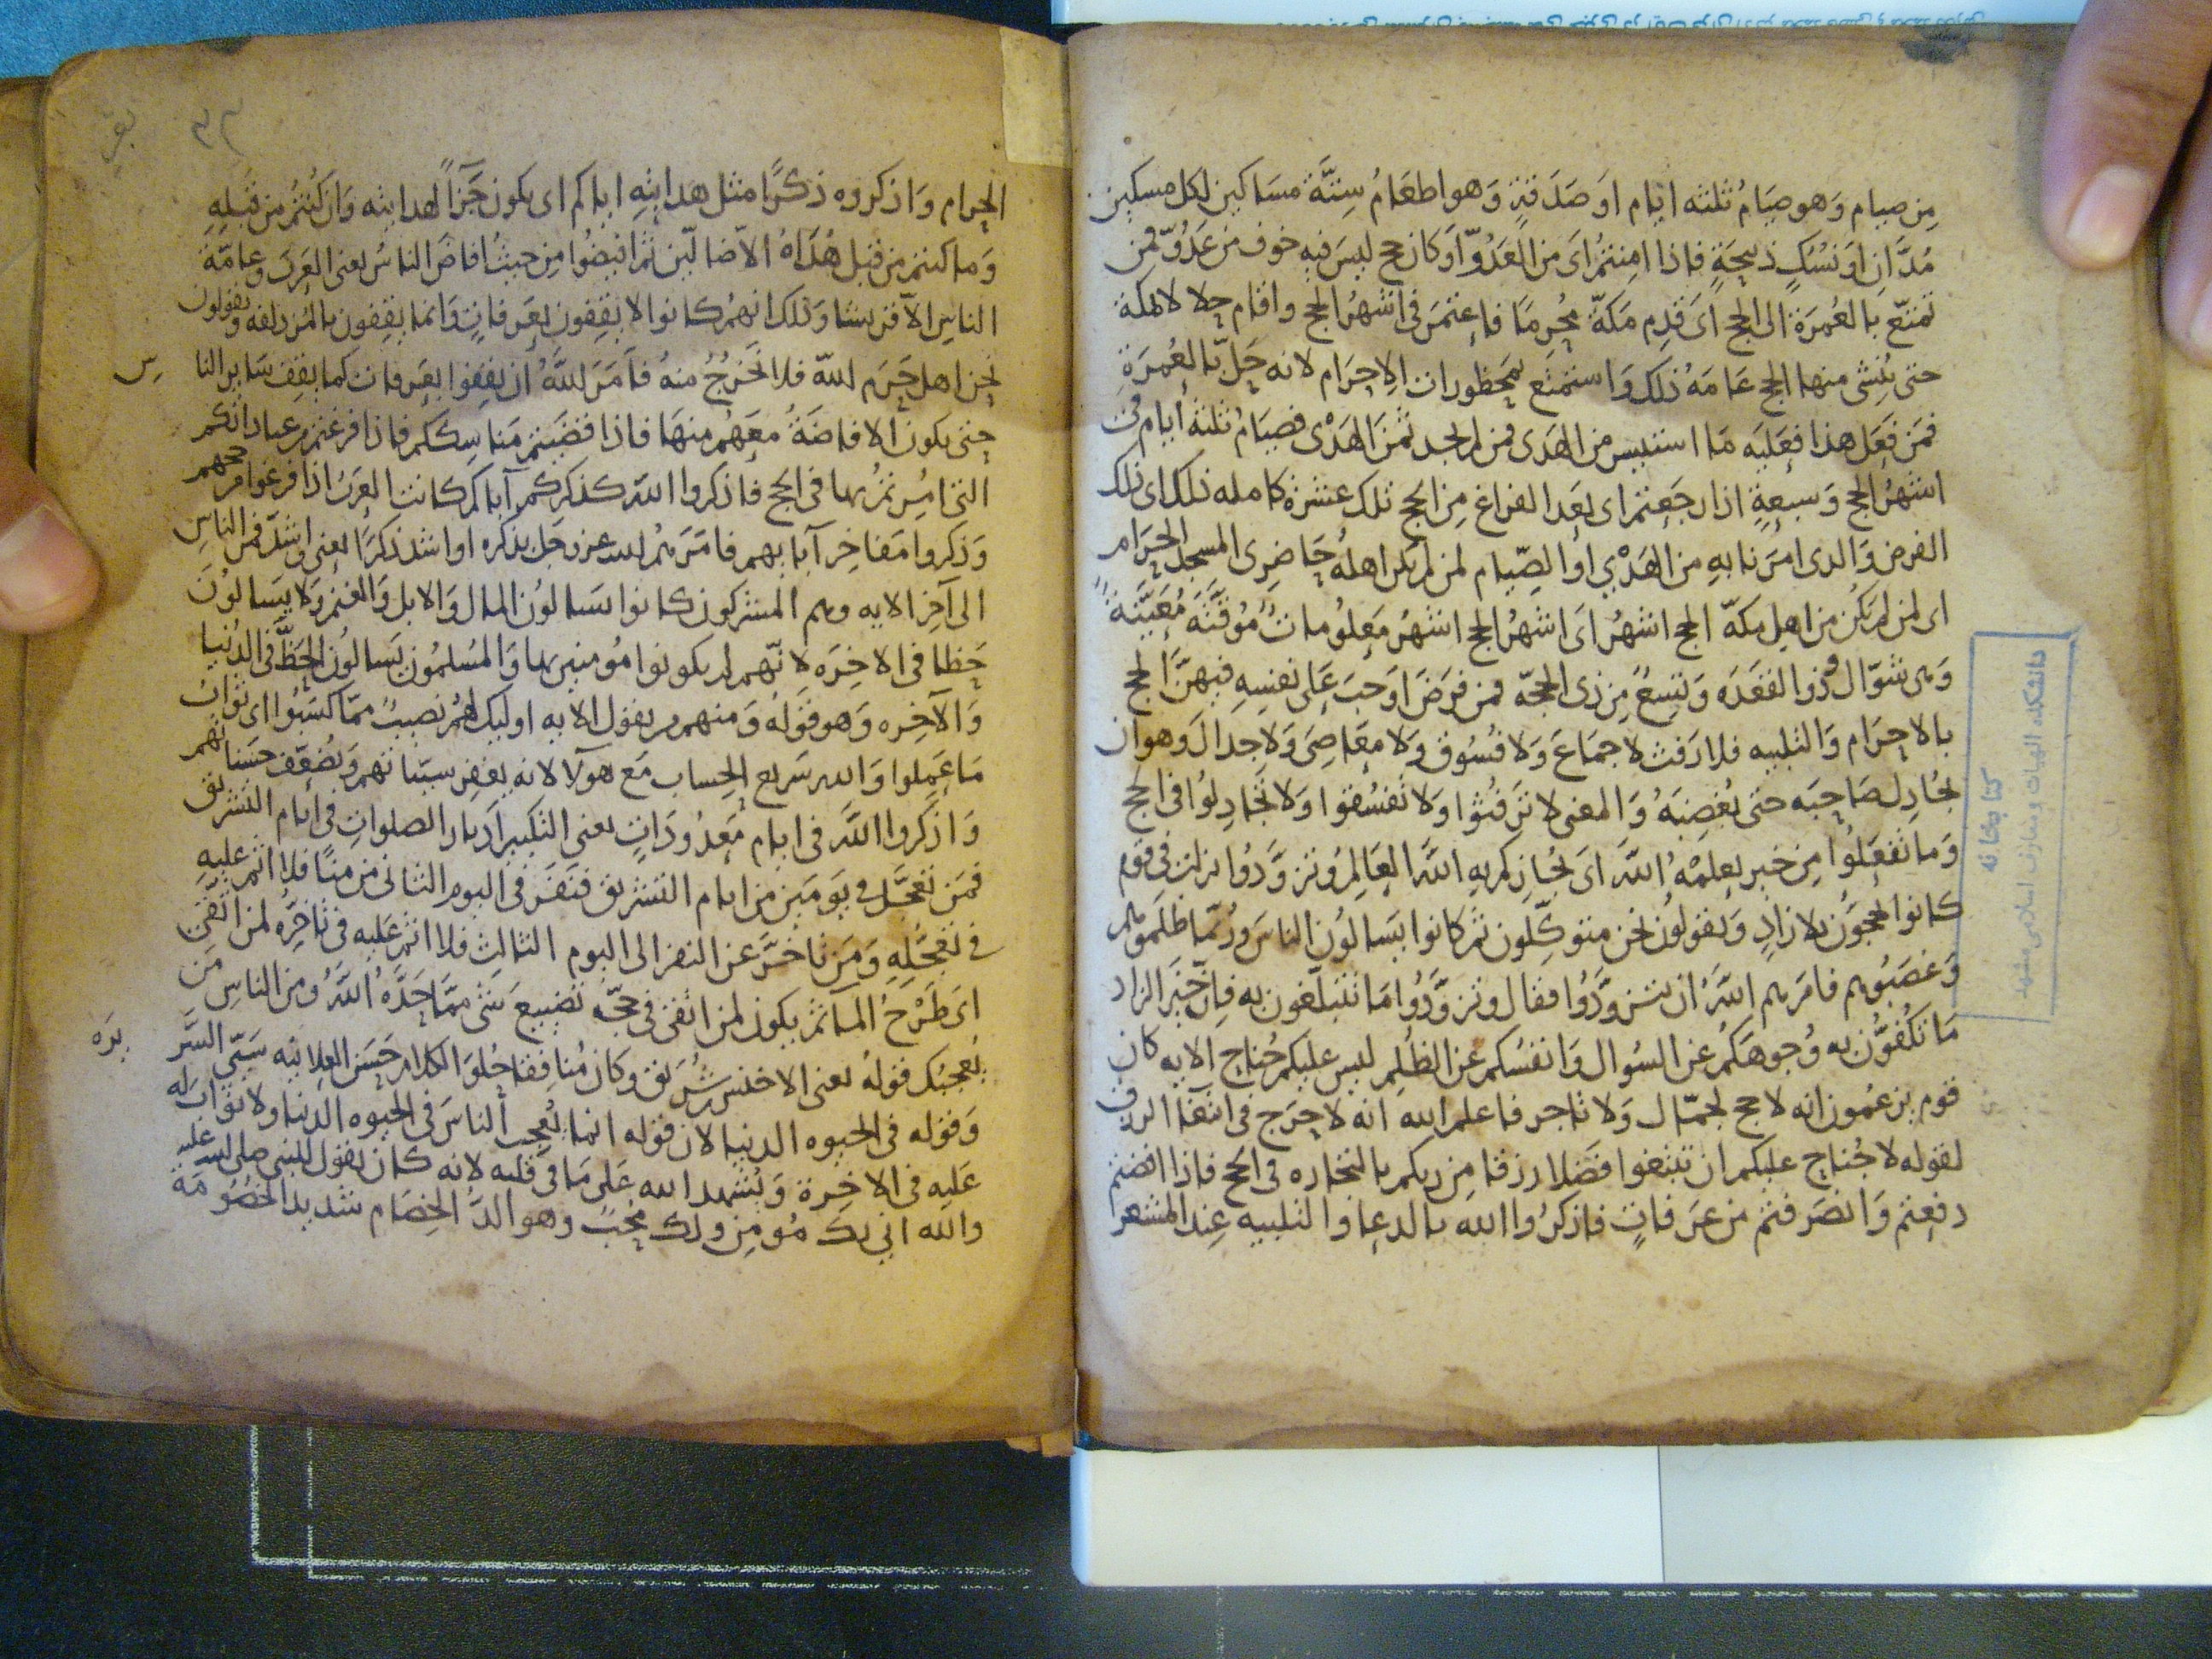 مِن صيام وَهو صيَامُ ثلثه ايام اوَ صَدَقةٍ وَهو اطعَامُ سِتَّة مسَاكين لكل مسكين
مُدَّانِ اوَ نسُكٍ ذبيحَةٍ فاذا امِنتمُ اىَ من العَدُوّ اوَ كان حج ليسَ فيه خوف من عَدُوّ فمن
تمتعّ بالعُمرَة الى الحج اىَ قدِم مَكةّ مُحرِمًا فاعِتمَرَ فى اشهُر الحج واقام حلالا بمكة
حتى يُنشى منها الحج عَامَهُ ذلك وَاستمتع بمحظورات الاِحرَام لانه حَلّ بالعُمرَةِ
فمَن فعَل هذا فعَليَه مَا استيسر من الهَدى فمن لم يجد ثمنَ الهَدْى فصيَامُ ثلثهُ ايام فى
اشهُر الحج وَ سبعةٍ اذا رجَعتم اى بَعد الفراغ مِن الحج تلك عشرة كامله ذلك اى ذلك
الفرض وَالدى امرَنا بهِ من الهَدْىِ اوَ الصِّيام لمن لم يكن اهلهُ حَاضِرى المسجدِ الحرَام
اى لمن لم يَكُن من اهِل مكةّ الحج اشهُر اىَ اشهُر الحج اشهُر مَعلوُماتٌ مُوقتَّه مُعَيَّنةً
وَهى شوّال وَذوالقعَدَه وَتِسِعُ مِن ذى الحجّه فمن فرَضَ اوَجبَ عَلى نفسِهِ فيهنَّ الحج
بالاحرَام وَالتلبيه فلا رَفث لا جمَاعَ وَلا فُسُوق وَلا معَاصِىَ وَلا جدالَ وَهو ان
يُجُادِل صَاحِبَه حتى يُغضِبَهُ وَالمعنى لا ترَفثُوا وَلا تفسُقوا وَلا تُجَادِلوُا فى الحج
وَما تفعَلوُا مِن خير يعلمْهُ اللهَّ اىَ يُجازِكم بهِ اللهَّ العَالِمُ وَتزوَّدوُا نزلت فى قوم
كانوا يحجوُّن بلا زادٍ وَيقولوُن نحن متوكّلِون ثم كانوا يسَالوُن الناسَ وَرُبمّا ظلمَوهم
وَغصَبُوهم فامَرهم اللهَّ ان يتزوَّدُوا فقال وتزوَّدُوُا مَا تتبلّغون به فانّ خيَر الزاد
مَا تكفوُّن به وُجوهَكُم عن السُوال وَانفسُكم عن الظلمِ ليس عليكم جُناح الايه كان
قوم يزعُمون انه لا حج لجمّال وَلا تاجر فاعلم الله انه لا حرَج فى ابتغا الرزق
لقوله لا جُناح عليكم ان تبتغوا فضلا رزقا مِن ربكم بالتجاره فى الحج فاذا افضتم
دفعتم وَانصَرفتم من عرَفاتٍ فاذكرُوا الله بالدعا والتلبيه عِند المشعر
دانشكده الهيات ومعارف اسلامى مشهد
كتابخانه
الحرام وَاذكروه ذكرًا مثل هدايتِهِ اياكم اى يكون جَزآً لهدايته وَان كُنتُم من قبلِهِ
وَما كنتم من قبل هُدَاهُ الاّ ضالّين ثم افيضُوا مِن حيثُ افاضَ الناسُ يعنى العَرَبَ وَعامّةَ
الناسِ الاّ قريشا وَذلك انهم كانوا لا يقِفون بعَرفاتٍ وَانما يقِفون بالمزدلفه وَيقولون
نحن اهل حَرَم الله فلا نَخرُجُ منهُ فاَمَرَ اللهَُّ ان يقِفوا بعَرفات كما يقِف سَاير النا س
حتى يكون الافاضَةُ معَهُم منهَا فاذا قضَيتم مَناسِككم فاذا فرغتم من عباداتكم
التى امُِرتمُ بها فى الحج فاذكروا الله كذكركم آباكم كانت العرَبُ اذا فرغوا من حجهم
وَذكروا مَفاخِر آبايهم فامَرَهُم الله عز وجَل بذكره اوا شد ذكرًا يعنى وَاشدّ فمن الناسِ
الى آخِر الايه وهم المشركون كانوا يسَالوُن المال وَالابل وَالغنم وَلا يسَالوُنَ
حَظا فى الاخِرَه لانّهم لم يكونوا مُومنين بها وَالمُسلمُون يَسَالوُن الحَظَّ فى الدُنيا
وَالآخِره وَهو قوَلهُ وَمنهم من يقول الايه اوليك لهُم نصيبٌ ممّا كسَبُوا اى ثوَابُ
مَا عَمِلوا وَالله سَريع الحِساب مَع هولآ لانه يغفِر سيّئاتهم وَيُضعِّف حسَناتهم
وَاذكروا اللهَّ فى ايام مَعدُودَاتٍ يعنى التكبير ادَبار الصلواتِ فى ايام التشريق
فمَن تعَجّل فى يوَمَين من ايام التشريق فنفَر فى اليوم الثانى من مِنًا فلا اثم عليهِ
فى تعَجّلهِ وَمَن تاخرَّ عن النفر الى اليوم الثالث فلا اثم عَليه فى تاخّرِه لمن اتقى
اى طَرْحُ المآثم يكون لمن اتقى فى حجّه تضييعَ شى ممّا حَدَّهُ اللهَّ وَمن الناسِ مَن
يُعجبُك قوَلهُ يعنى الاخنس بن شُرَيق وكان مُنافِقا حُلوَ الكلام حَسَن العلانيه سَىّ السَّر يره
وَقوَله فى الحيوه الدنيا لان قوَله انما يُعجب الناسَ فى الحيوه الدنيا ولا ثوَابَ له
عَليه فى الاخرة وَيُشهد الله عَلى مَا فى قلبه لانه كان يقول للنبى صلى الله عليه
والله انى بك مُومِن ولك مُحِبٌ وهو الدُّ الخِصَام شديد الخصُومَة